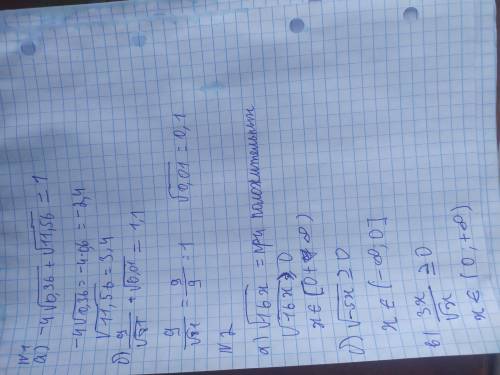 №1
а) -4√0,36 + √11,56 = 1
-4√0,36 = -4·0,6 = -2,4
√11,56 = 3,4
б) 9/√81 + √0,01 = 1,1
9/√81 = 9/9 = 1 √0,01 = 0,1
№2
а) √16x = при положительных
√16x ≥ 0
x ∈ [0 +∞)
б) √-5x ≥ 0
x ∈ (-∞; 0]
в) 3x/√x ≥ 0
x ∈ (0, +∞)